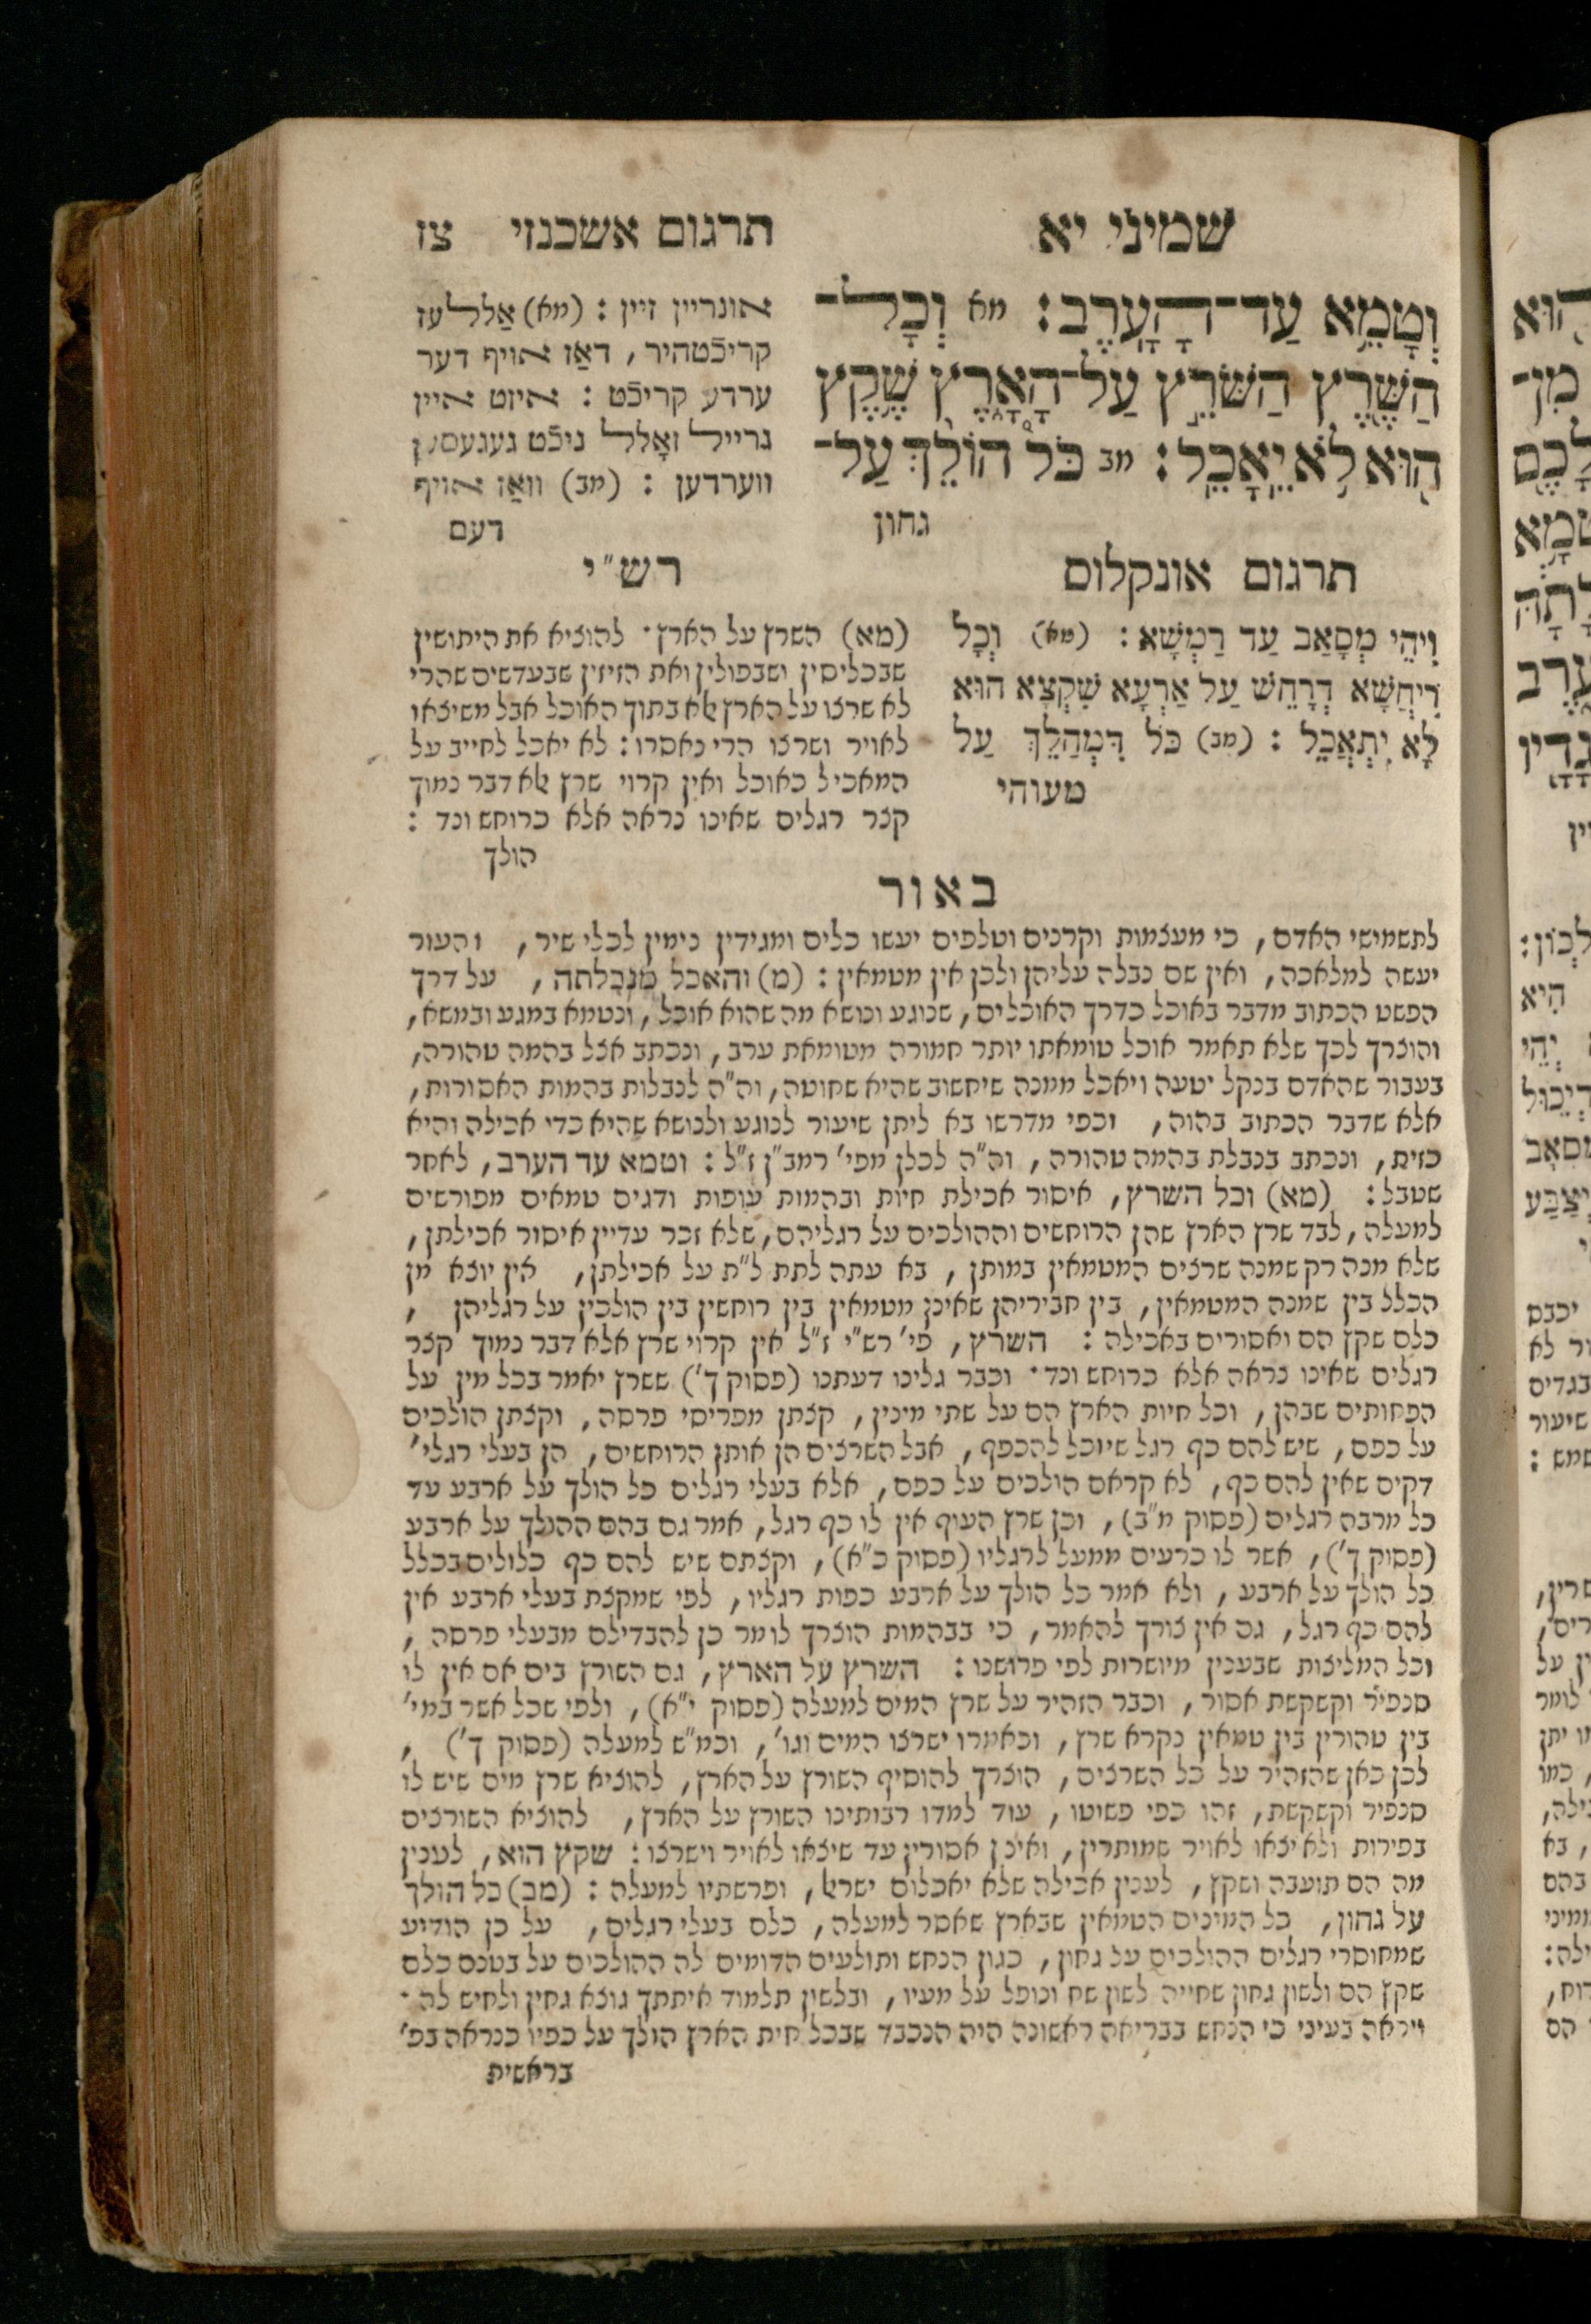 שמיני יא
תרגום אשכנזי צז
וְטָמֵא עַד־הָעָרֶב׃ מא וְכָל־
הַשֶּׁרֶץ הַשֹּׁרֵץ עַל־הָאָרֶץ שֶׁקֶץ
הוּא לֹא יֵאָכֵל׃ מב כֹּל הוֹלֵךְ עַל־
גחון
אונריין זיין : (מא) אַללעז
קריכֿטהיר , דאַז אויף דער
ערדע קריכֿט : איזט איין
גרייל זאָלל ניכֿט געגעססן
ווערדען : (מב) וואַז אויף
דעם
תרגום אונקלוס
וִיהֵי מְסָאַב עַד רַמְשָׁא : (מא) וְכָל
רִיחֲשָׁא דְרָחֵשׁ עַל אַרְעָא שִׁקְצָא הוּא
לָא יִתְאֲכֵל : (מב) כֹּל דִּמְהַלֵּךְ עַל
מעוהי
רש״י
(מא) השרץ על הארץ · להוציא את היתושין
שבכליסין ושבפולין ואת הזיזין שבעדשים שהרי
לא שרצו על הארץ אלא בתוך האוכל אבל משיצאו
לאויר ושרצו הרי נאסרו : לא יאכל לחייב על
המאכיל כאוכל ואין קרוי שרץ אלא דבר נמוך
קצר רגלים שאינו נראה אלא כרוחש ונד :
הולך
באור
לתשמישי האדם , כי מעצמות וקרנים וטלפים יעשו כלים ומגידין נימין לכלי שיר , והעור
יעשה למלאכה , ואין שם נבלה עליהן ולכן אין מטמאין : (מ) והאכל מנבלתה , על דרך
הפשט הכתוב מדבר באוכל כדרך האוכלים , שנוגע ונושא מה שהוא אוכל , ונטמא במגע ובמשא ,
והוצרך לכך שלא תאמר אוכל טומאתו יותר חמורה מטומאת ערב , ונכתב אצל בהמה טהורה ,
בעבור שהאדם בנקל יטעה ויאכל ממנה שיחשוב שהיא שחוטה , וה״ה לנבלות בהמות האסורות ,
אלא שדבר הכתוב בהוה , וכפי מדרשו בא ליתן שיעור לנוגע ולנושא שהיא כדי אכילה והיא
כזית , ונכתב בנבלת בהמה טהורה , וה״ה לכלן מפי׳ רמב״ן ז״ל : וטמא עד הערב , לאחר
שטבל : (מא) וכל השרץ , איסור אכילת חיות ובהמות עופות ודגים טמאים מפורשים
למעלה , לבד שרץ הארץ שהן הרוחשים וההולכים על רגליהם , שלא זכר עדיין איסור אכילתן ,
שלא מנה רק שמנה שרצים המטמאין במותן , בא עתה לתת ל״ת על אכילתן , אין יוצא מן
הכלל בין שמנה המטמאין , בין חביריהן שאינן מטמאין בין רוחשין בין הולכין על רגליהן ,
כלם שקץ הם ואסורים באכילה : השרץ , פי׳ רש״י ז״ל אין קרוי שרץ אלא דבר נמוך קצר
רגלים שאינו נראה אלא כרוחש ונד · וכבר גלינו דעתנו (פסוק ך׳) ששרץ יאמר בכל מין על
הפחותים שבהן , וכל חיות הארץ הם על שתי מינין , קצתן מפריסי פרסה , וקצתן הולכים
על כפם , שיש להם כף רגל שיוכל להכפף , אבל השרצים הן אותן הרוחשים , הן בעלי רגלי׳
דקים שאין להם כף , לא קראם הולכים על כפם , אלא בעלי רגלים כל הולך על ארבע עד
כל מרבה רגלים (פסוק מ״ב) , וכן שרץ העוף אין לו כף רגל , אמר גם בהם ההולך על ארבע
(פסוק ך׳) , אשר לו כרעים ממעל לרגליו (פסוק כ״א) , וקצתם שיש להם כף כלולים בכלל
כל הולך על ארבע , ולא אמר כל הולך על ארבע כפות רגליו , לפי שמקצת בעלי ארבע אין
להם כף רגל , גם אין צורך להאמר , כי בבהמות הוצרך לומר כן להבדילם מבעלי פרסה ,
וכל המליצות שבענין מיושרות לפי פרושנו : השרץ על הארץ , גם השורץ בים אם אין לו
סנפיר וקשקשת אסור , וכבר הזהיר על שרץ המים למעלה (פסוק י״א) , ולפי שכל אשר במי׳
בין טהורין בין טמאין נקרא שרץ , וכאמרו ישרצו המים וגו׳ , וכמ״ש למעלה (פסוק ך׳) ,
לכן כאן שהזהיר על כל השרצים , הוצרך להוסיף השורץ על הארץ , להוציא שרץ מים שיש לו
סנפיר וקשקשת , זהו כפי פשוטו , עוד למדו רבותינו השורץ על הארץ , להוציא השורצים
בפירות ולא יצאו לאויר שמותרין , ואינן אסורין עד שיצאו לאויר וישרצו : שקץ הוא , לענין
מה הם תועבה ושקץ , לענין אכילה שלא יאכלום ישראל , ופרשתיו למעלה : (מב) כל הולך
על גחון , כל המינים הטמאין שבארץ שאסר למעלה , כלם בעלי רגלים , על כן הודיע
שמחוסרי רגלים ההולכים על גחון , כגון הנחש ותולעים הדומים לה ההולכים על בטנם כלם
שקץ הם ולשון גחון שחייה לשון שח ונופל על מעיו , ובלשון תלמוד איתתך גוצא גחין ולחיש לה ·
ויראה בעיני כי הנחש בבריאה ראשונה היה הנכבד שבכל חית הארץ הולך על כפיו כנראה בפ׳
בראשית